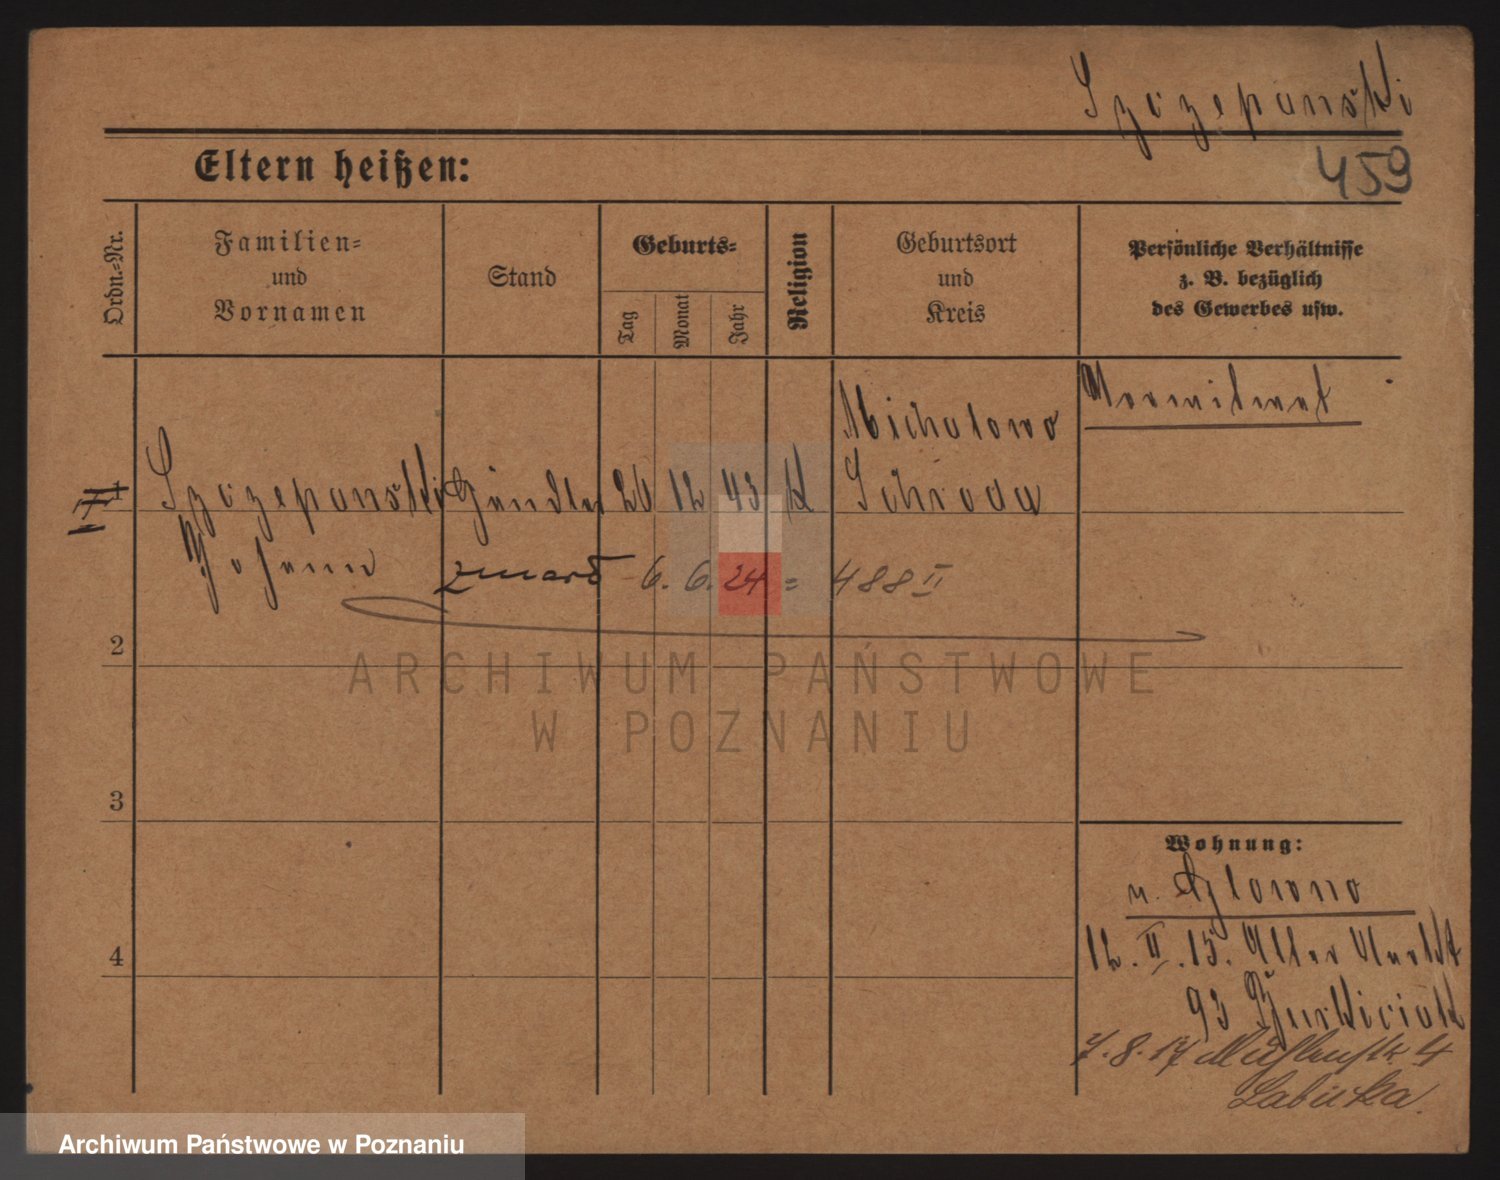 Szczepanski
459
Eltern heißen:
Ordn.-Nr.
Familien-
und
Vornamen
Stand
Geburts-
Tag
Monat
Jahr
Religion
Geburtsort
und
Kreis
Persönliche Verhältnisse
z. B. bezüglich
des Gewerbes usw.
Michalowo
1 Szczepanski Händler 26 12 43 K Schroda
Johann zmarł 6. 6. 24 = 488 II
2
3
4
ARCHIWUM PAŃSTWOWE
W POZNANIU
Wohnung:
12. II. 15. Alter Markt
93
7. 8. 17 Mühlenstr. 4
Archiwum Państwowe w Poznaniu